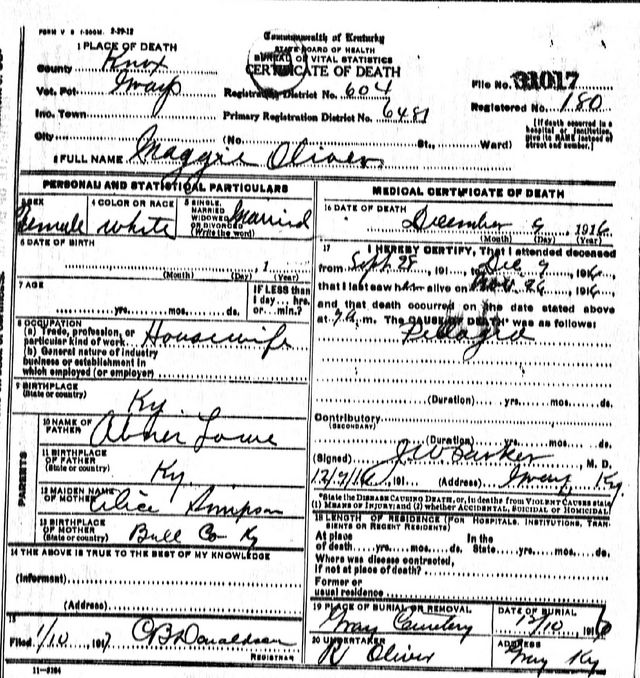 FORM V S 1-500M. 2-29-12
Commonwealth of Kentucky
STATE BOARD OF HEALTH
BUREAU OF VITAL STATISTICS
CERTIFICATE OF DEATH
1 PLACE OF DEATH
County Knox
Vot. Pct Grays
Registration District No. 604
File No. 31017
Inc. Town
Primary Registration District No. 6481
Registered No. 180
City (No. St., Ward)
[If death occurred in a hospital or institution, give its NAME instead of street and number.]
2 FULL NAME Maggie Oliver
PERSONAL AND STATISTICAL PARTICULARS
3 SEX Female
4 COLOR OR RACE White
5 SINGLE, MARRIED WIDOWED OR DIVORCED (Write the word) Married
6 DATE OF BIRTH
(Month) (Day) , 1 (Year)
7 AGE
yrs. mos. ds.
IF LESS than 1 day... hrs. or... min.?
8 OCCUPATION
(a) Trade, profession, or particular kind of work Housewife
(b) General nature of industry
business or establishment in
which employed (or employer)
9 BIRTHPLACE
(State or country) Ky.
PARENTS
10 NAME OF FATHER Abner Lowe
11 BIRTHPLACE OF FATHER (State or country) Ky.
12 MAIDEN NAME OF MOTHER Alice Simpson
13 BIRTHPLACE OF MOTHER (State or country) Bell Co Ky
14 THE ABOVE IS TRUE TO THE BEST OF MY KNOWLEDGE
(Informent)
(Address)
15
Filed 1/10, 1917 CB Donaldson
REGISTRAR
11-3184
MEDICAL CERTIFICATE OF DEATH
16 DATE OF DEATH
December 9 1916
(Month) (Day) (Year)
17 I HEREBY CERTIFY, That I attended deceased
from Sept. 28, 191 , to Dec 9 1916
that I last saw her alive on Nov. 26, 1916
and that death occurred on the date stated above
at m. The CAUSE OF DEATH* was as follows:
Pellagra
(Duration) yrs. mos. ds.
Contributory
(SECONDARY)
(Duration) yrs. mos. ds.
(Signed) J W Parker, M. D.
12/9/16, 191 (Address) Gray Ky
*State the DISEASE CAUSING DEATH, or, in deaths from VIOLENT CAUSES state
(1) MEANS OF INJURY; and (2) whether ACCIDENTAL, SUICIDAL or HOMICIDAL
18 LENGTH OF RESIDENCE (FOR HOSPITALS, INSTITUTIONS, TRANSIENTS OR RECENT RESIDENTS)
At place of death yrs. mos. ds. In the State yrs. mos. ds.
Where was disease contracted,
if not at place of death?
Former or
usual residence
19 PLACE OF BURIAL OR REMOVAL Gray Cemetery
DATE OF BURIAL 12/10, 1916
20 UNDERTAKER R Oliver
ADDRESS Gray Ky